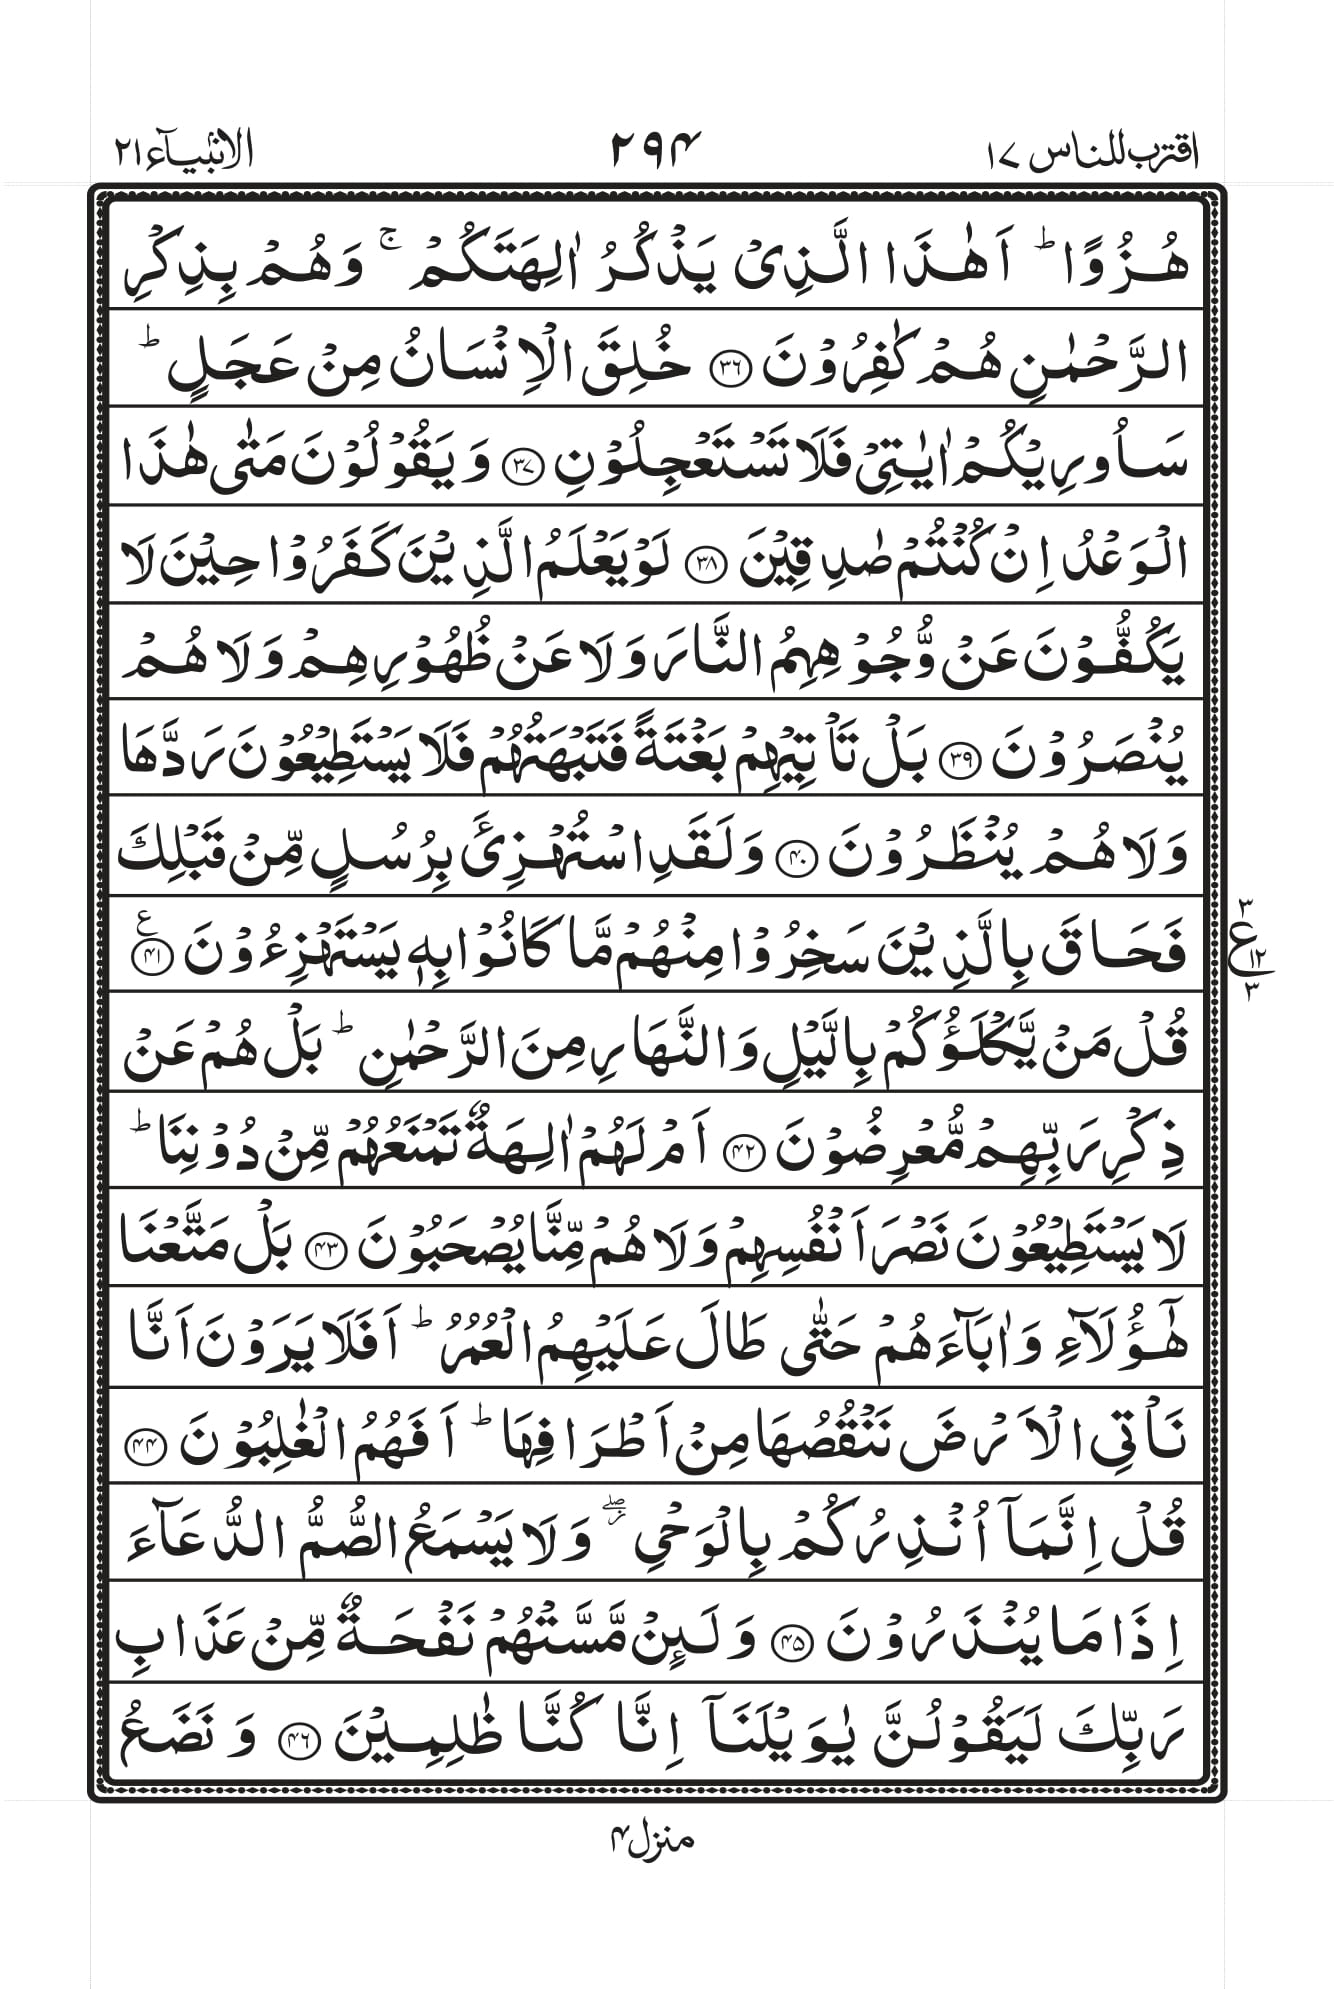 اقترب للناس ١٧
٢٩٤
الانبیآء ٢١
هُزُوًا ؕ اَهٰذَا الَّذِیْ یَذْكُرُ اٰلِهَتَكُمْ ۚ وَهُمْ بِذِكْرِ
الرَّحْمٰنِ هُمْ كٰفِرُوْنَ ﴿۳۶﴾ خُلِقَ الْاِنْسَانُ مِنْ عَجَلٍ ؕ
سَاُورِیْكُمْ اٰیٰتِیْ فَلَا تَسْتَعْجِلُوْنِ ﴿۳۷﴾ وَیَقُوْلُوْنَ مَتٰی هٰذَا
الْوَعْدُ اِنْ كُنْتُمْ صٰدِقِیْنَ ﴿۳۸﴾ لَوْ یَعْلَمُ الَّذِیْنَ كَفَرُوْا حِیْنَ لَا
یَكُفُّوْنَ عَنْ وُّجُوْهِهِمُ النَّارَ وَلَا عَنْ ظُهُوْرِهِمْ وَلَا هُمْ
یُنْصَرُوْنَ ﴿۳۹﴾ بَلْ تَاْتِیْهِمْ بَغْتَةً فَتَبْهَتُهُمْ فَلَا یَسْتَطِیْعُوْنَ رَدَّهَا
وَلَا هُمْ یُنْظَرُوْنَ ﴿۴۰﴾ وَلَقَدِ اسْتُهْزِئَ بِرُسُلٍ مِّنْ قَبْلِكَ
فَحَاقَ بِالَّذِیْنَ سَخِرُوْا مِنْهُمْ مَّا كَانُوْا بِهٖ یَسْتَهْزِءُوْنَ ﴿۴۱﴾ ع
٣ ع ١٢ ٣
قُلْ مَنْ یَّكْلَؤُكُمْ بِالَّیْلِ وَالنَّهَارِ مِنَ الرَّحْمٰنِ ؕ بَلْ هُمْ عَنْ
ذِكْرِ رَبِّهِمْ مُّعْرِضُوْنَ ﴿۴۲﴾ اَمْ لَهُمْ اٰلِهَةٌ تَمْنَعُهُمْ مِّنْ دُوْنِنَا ؕ
لَا یَسْتَطِیْعُوْنَ نَصْرَ اَنْفُسِهِمْ وَلَا هُمْ مِّنَّا یُصْحَبُوْنَ ﴿۴۳﴾ بَلْ مَتَّعْنَا
هٰۤؤُلَآءِ وَاٰبَآءَهُمْ حَتّٰی طَالَ عَلَیْهِمُ الْعُمُرُ ؕ اَفَلَا یَرَوْنَ اَنَّا
نَاْتِی الْاَرْضَ نَنْقُصُهَا مِنْ اَطْرَافِهَا ؕ اَفَهُمُ الْغٰلِبُوْنَ ﴿۴۴﴾
قُلْ اِنَّمَاۤ اُنْذِرُكُمْ بِالْوَحْیِ ۖؗ وَلَا یَسْمَعُ الصُّمُّ الدُّعَآءَ
اِذَا مَا یُنْذَرُوْنَ ﴿۴۵﴾ وَلَىِٕنْ مَّسَّتْهُمْ نَفْحَةٌ مِّنْ عَذَابِ
رَبِّكَ لَیَقُوْلُنَّ یٰوَیْلَنَاۤ اِنَّا كُنَّا ظٰلِمِیْنَ ﴿۴۶﴾ وَنَضَعُ
منزل ٤